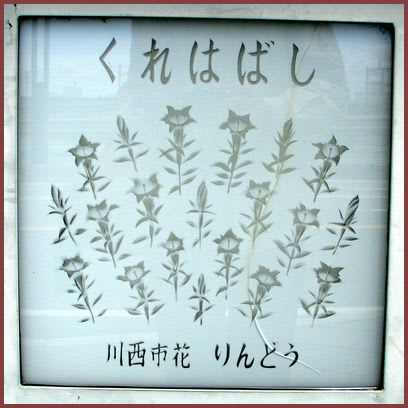 くれはばし
川西市花 りんどう